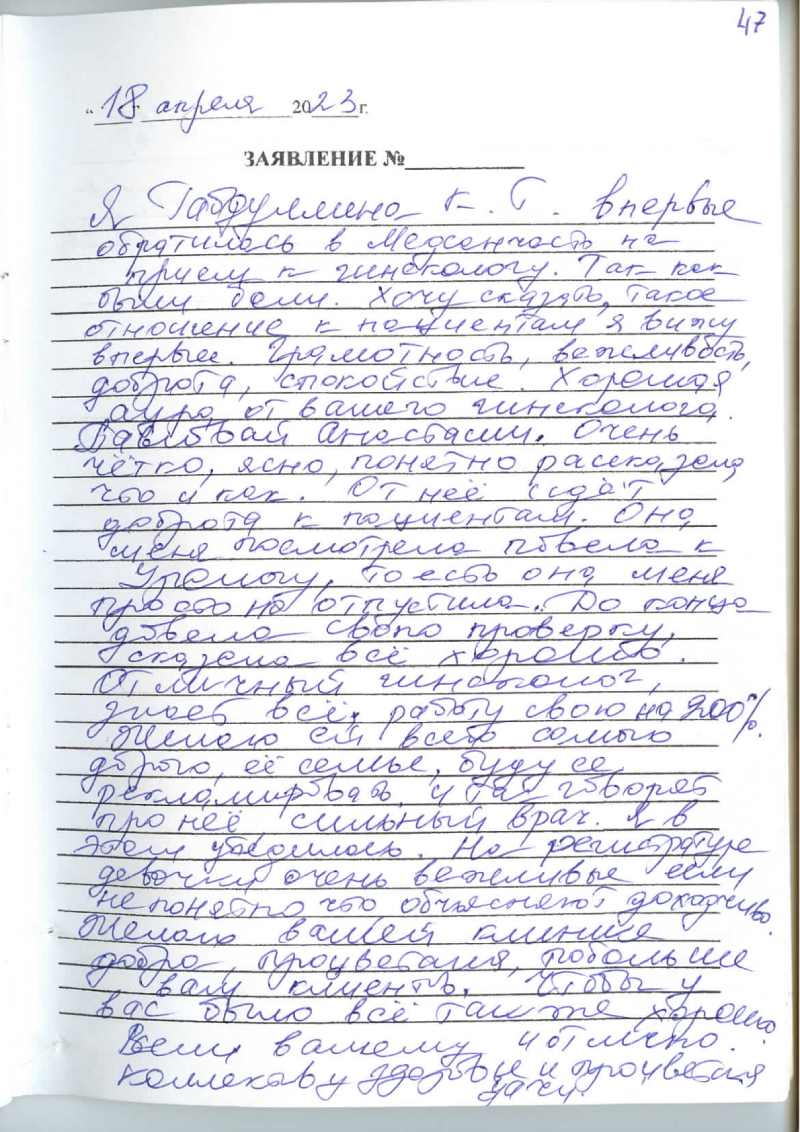 47
"18" апреля 2023 г.
ЗАЯВЛЕНИЕ №
Я Габдуллина К. Г. впервые
обратилась в Медсанчасть на
прием к гинекологу. Так как
были боли. Хочу сказать, такое
отношение к пациентам я вижу
впервые. Грамотность, вежливость,
доброта, спокойствие. Хорошая
аура, от вашего гинеколога
Анастасии. Очень
чётко, ясно, понятно рассказала
что и как. От неё идёт
доброта к пациентам. Она
меня посмотрела повела к
Урологу, то есть она меня
просто не отпустила. До конца
довела свою проверку,
сказала всё хорошо.
Отличный гинеколог,
знает всё, работу свою на 200%.
Желаю ей всего самого
доброго, её семье, буду её
рекламировать, и так говорят
про неё сильный врач. Я в
этом убедилась. На регистратуре
девочки очень вежливые если
не понятно что объясняют доходчиво.
Желаю вашей клинике
добра, процветания, побольше
вам клиентов. Чтобы у
вас было всё также хорошо
Всем вашему и отлично.
коллективу здоровья и процветания
удачи.